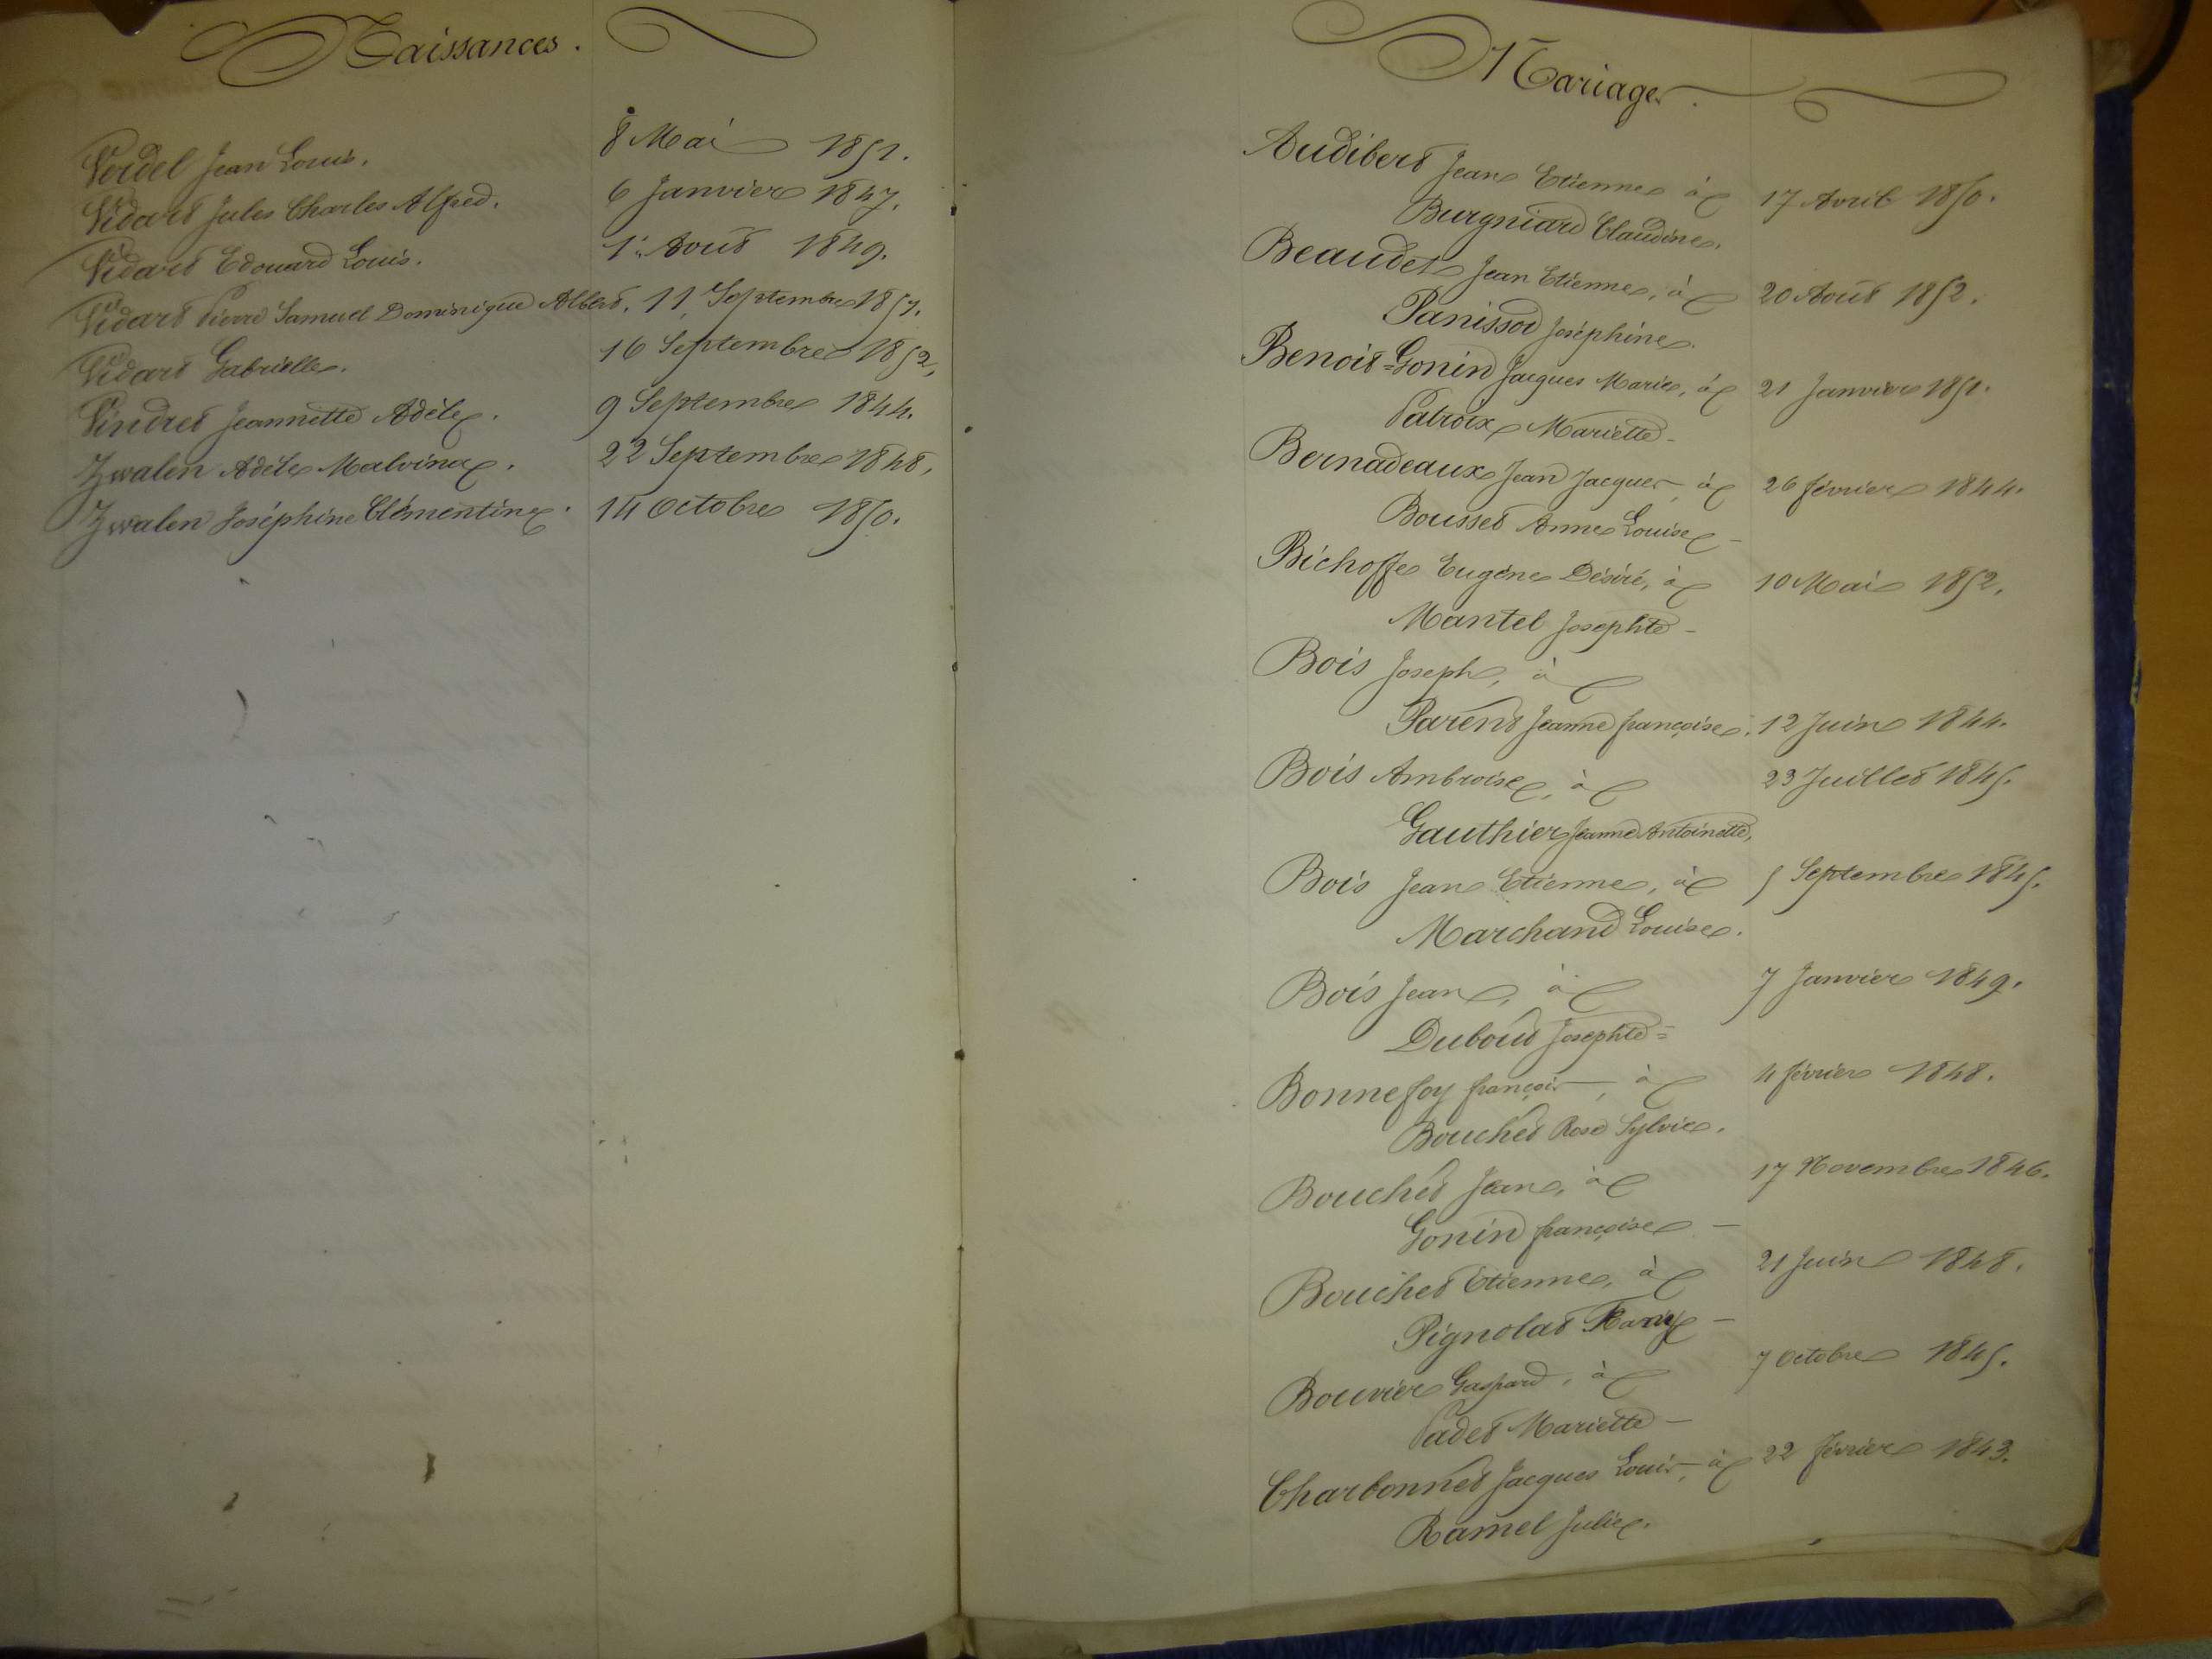 Naissances.
Verdel Jean Louis. 8 Mai 1851.
Vidart Jules Charles Alfred. 6 Janvier 1847.
Vidart Edouard Louis. 1er Aout 1849.
Vidart Pierre Samuel Dominique Albert. 11 Septembre 1851.
Vidart Gabrielle. 16 Septembre 1852.
Vindret Jeannette Adèle. 9 Septembre 1844.
Zwalen Adèle Malvina. 22 Septembre 1848.
Zwalen Joséphine Clémentine. 14 Octobre 1850.
Mariages.
Audibert Jean Etienne à 17 Avril 1850.
Burgniard Claudine.
Beaudet Jean Etienne, à 20 Aout 1852.
Panissod Joséphine.
Benoit=Gonin Jacques Marie, à 21 Janvier 1851.
Patroix Mariette -
Bernadeaux Jean Jacques, à 26 février 1844.
Bousset Anne Louise -
Bichoffe Eugène Désiré, à 10 Mai 1852.
Mantel Josephte -
Bois Joseph, à
Parent Jeanne françoise. 12 Juin 1844.
Bois Ambroise, à 23 Juillet 1845.
Gauthier Jeanne Antoinette.
Bois Jean Etienne, à 5 Septembre 1845.
Marchand Louise.
Bois Jean, à 7 Janvier 1849.
Duboud Josephte =
Bonnefoy françois, à 4 février 1848.
Bouchet Rose Sylvie.
Bouchet Jean, à 17 Novembre 1846.
Gonin françoise -
Bouchet Etienne, à 21 Juin 1848.
Pignolat -
Bouvier Gaspard, à 7 Octobre 1845.
Padet Mariette -
Charbonnet Jacques Louis, à 22 février 1843.
Ramel Julie.